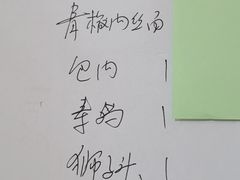 青椒肉丝面
包肉 1
素鸡 1
狮子头 1